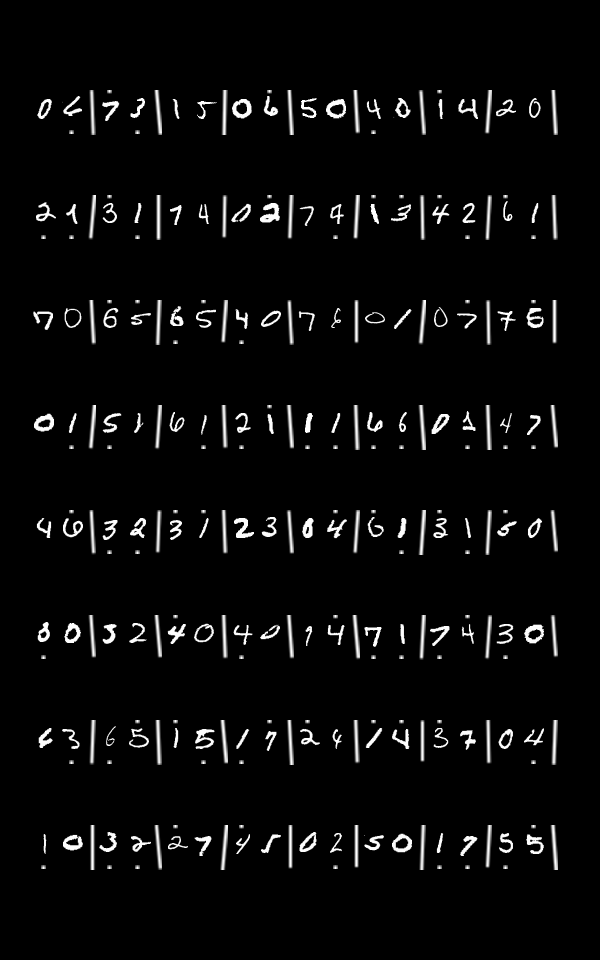 0 6 | 7 3 | 1 5 | 0 6 | 5 0 | 4 0 | 1 4 | 2 0 |
2 1 | 3 1 | 7 4 | 0 2 | 7 4 | 1 3 | 4 2 | 6 1 |
7 0 | 6 5 | 6 5 | 4 0 | 7 6 | 0 1 | 0 7 | 7 5 |
0 1 | 5 1 | 6 1 | 2 1 | 1 1 | 6 6 | 0 1 | 4 7 |
4 6 | 3 2 | 3 1 | 2 3 | 0 4 | 6 1 | 3 1 | 5 0 |
0 0 | 3 2 | 4 0 | 4 0 | 1 4 | 7 1 | 7 4 | 3 0 |
6 3 | 6 5 | 1 5 | 1 7 | 2 4 | 1 4 | 3 7 | 0 4 |
1 0 | 3 2 | 2 7 | 4 5 | 0 2 | 5 0 | 1 7 | 5 5 |